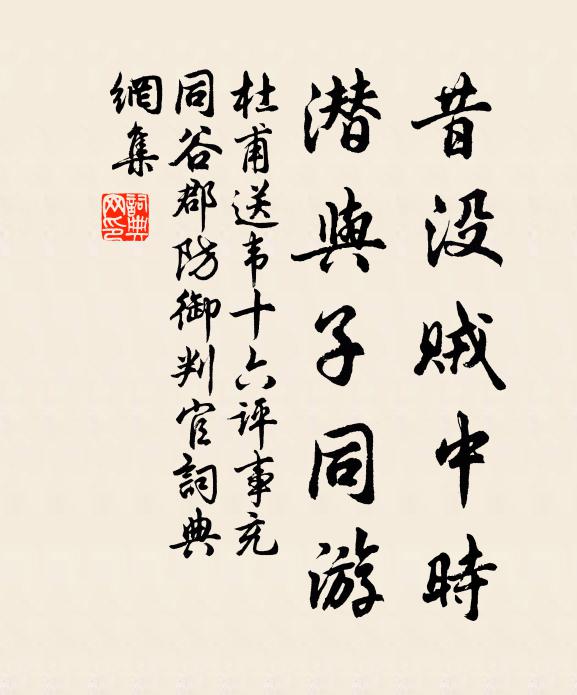 昔没贼中時
潜與子同游
杜甫送韦十六评事充
同谷郡防御判官詞典
網集
詞典
网印